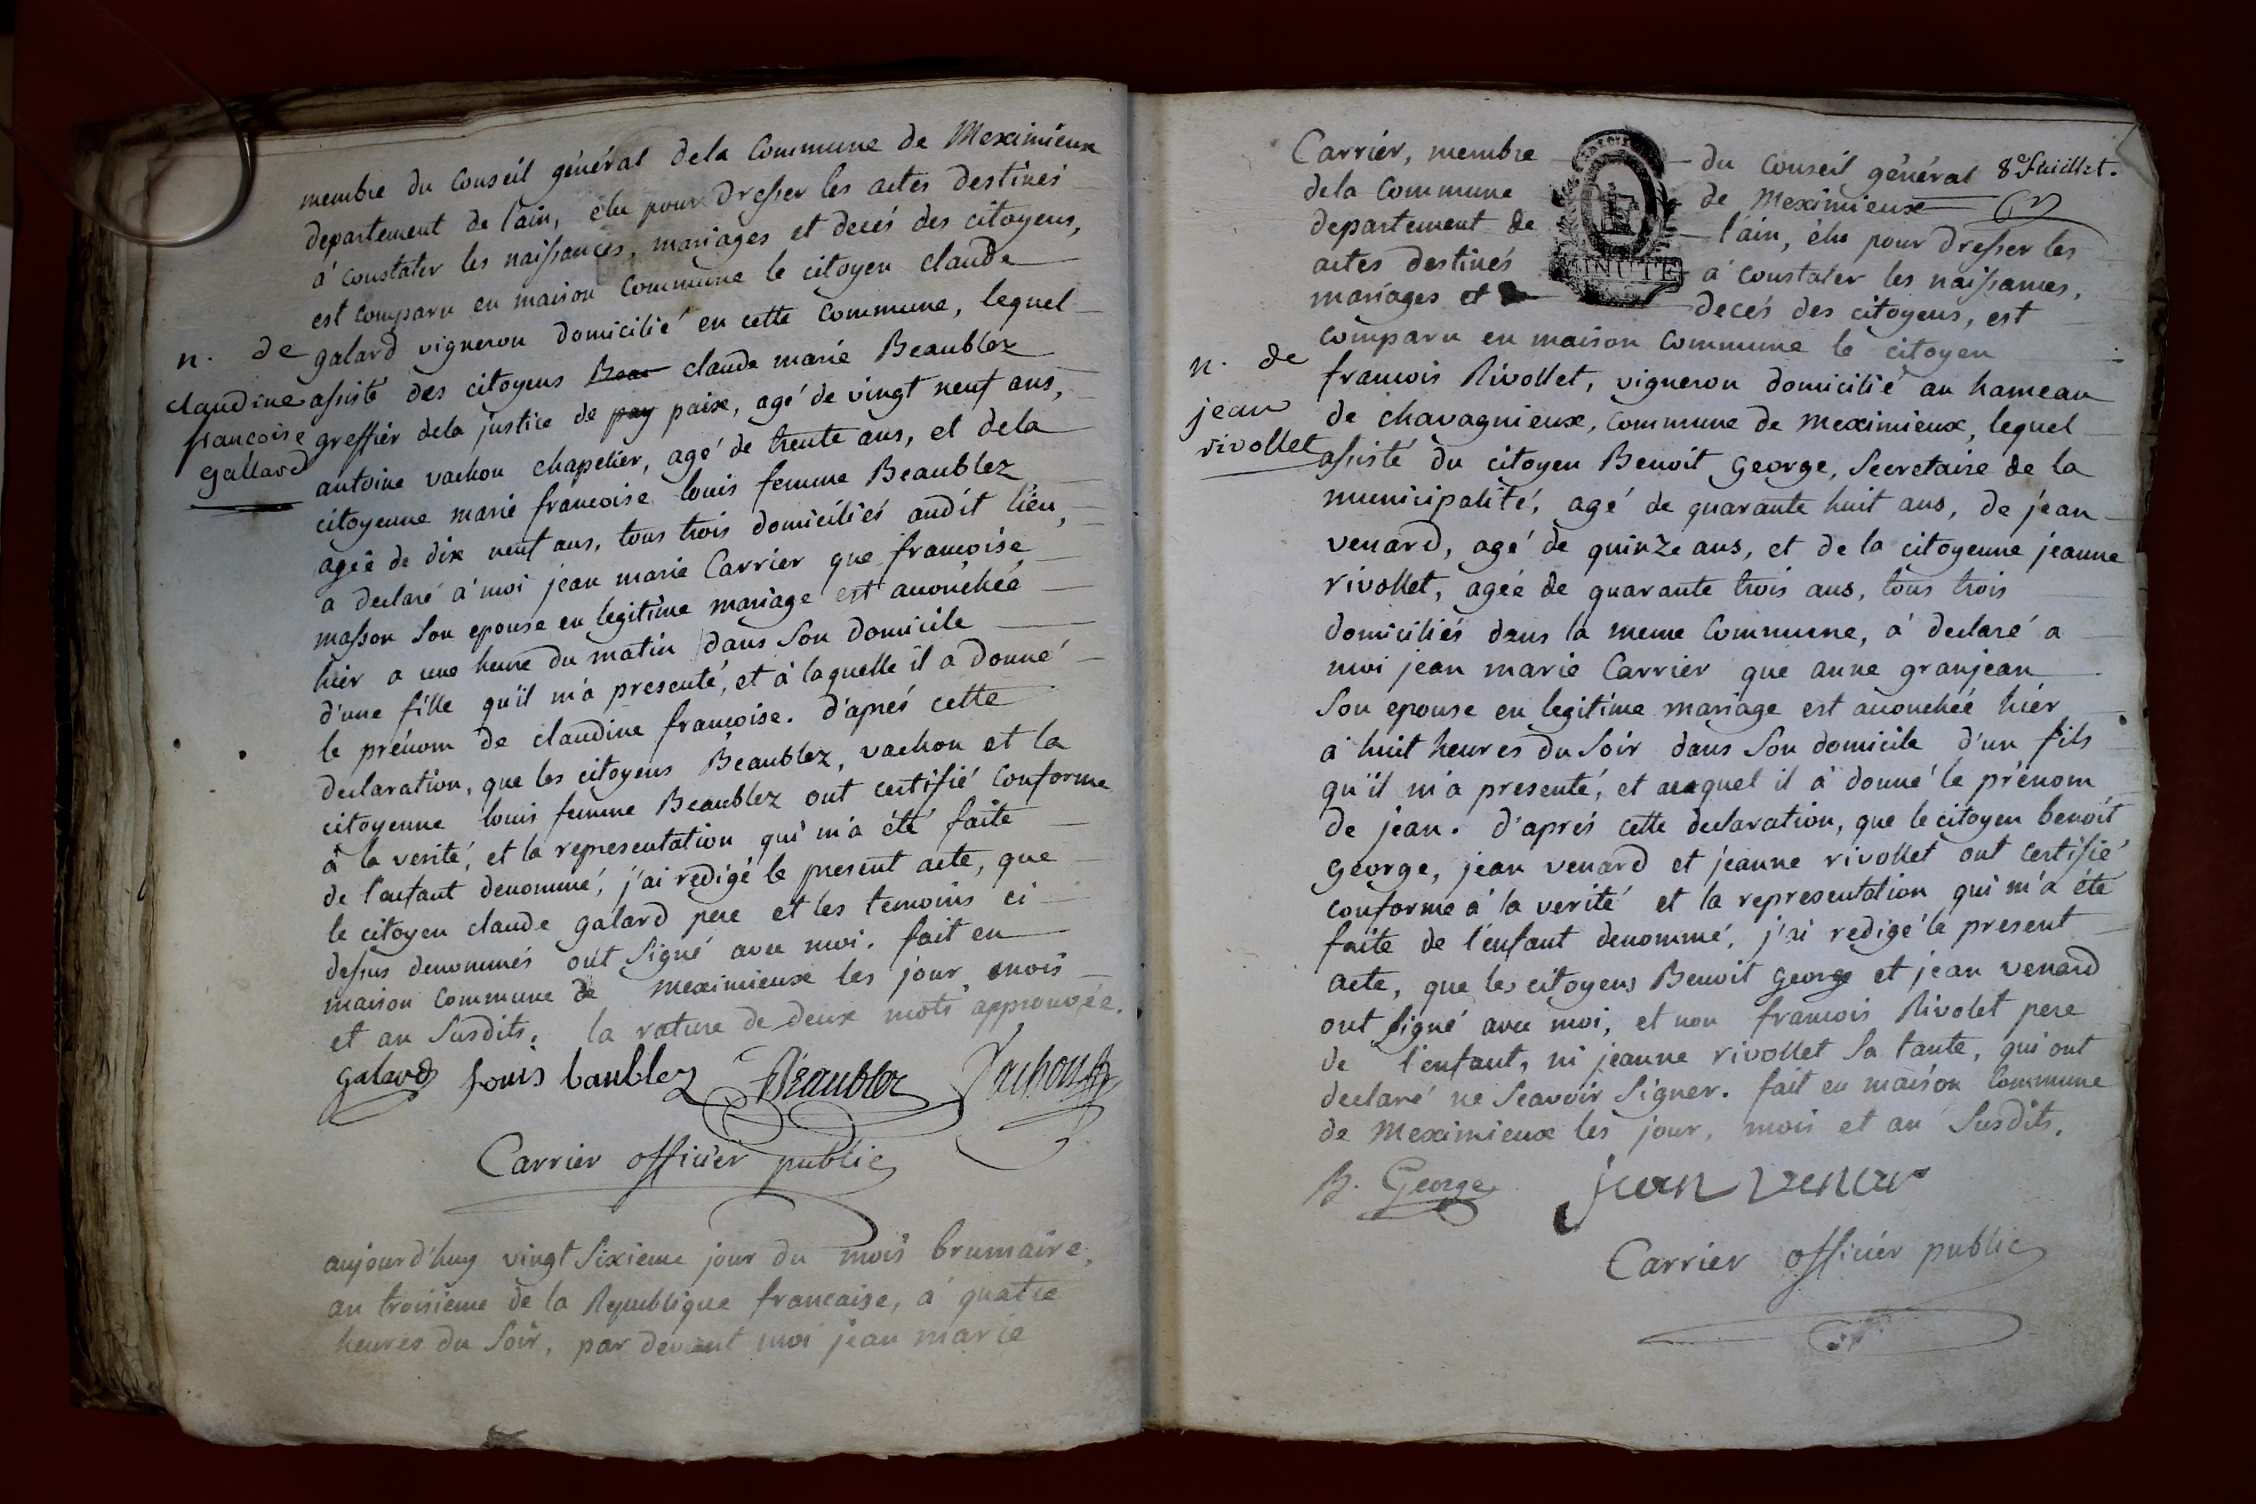 membre du Conseil général dela Commune de Meximieux
departement de l'ain, élu pour dresser les actes destinés
à constater les naissances, mariages et decés des citoyens,
est comparu en maison Commune le citoyen claude
n. de
claudine
francoise
gallard
galard vigneron domicilié en cette Commune, lequel
assisté des citoyens Beau claude marie Beaublez
greffier dela justice de pay paix, agé de vingt neuf ans,
antoine vachon chapelier, agé de trente ans, et dela
citoyenne marie francoise louis femme Beaublez
agée de dix neuf ans, tous trois domiciliés audit lieu,
a declaré à moi jean marie Carrier que francoise
masson son epouse en legitime mariage est accouchée
hier a une heure du matin dans son domicile
d'une fille qu'il m'a presenté, et à laquelle il a donné
le prénom de claudine francoise. d'aprés cette
declaration, que les citoyens Beaublez, vachon et la
citoyenne louis femme Beaublez ont certifié conforme
à la verité, et la representation qui m'a été faite
de l'enfant denommé, j'ai redigé le present acte, que
le citoyen claude galard pere et les temoins ci
dessus denommés ont signé avec moi. fait en
maison Commune de Meximieux les jour mois
et an susdits. la rature de deux mots approuvée.
galard Louis baublez Béaublez Vachon
Carrier officier public
aujourd'huy vingt sixieme jour du mois brumaire,
an troisieme de la Republique francaise, à quatre
heures du soir, par devant moi jean marie
8e fuillet.
Carrier, membre du Conseil général
dela Commune de Meximieux
departement de l'ain, élu pour dresser les
actes destinés à constater les naissances,
mariages et decés des citoyens, est
comparu en maison Commune le citoyen
MINUTE
n. de
jean
rivollet
francois Rivollet, vigneron domicilié au hameau
de chavagnieux, Commune de Meximieux, lequel
assisté du citoyen Benoit George, Secretaire de la
municipalité, agé de quarante huit ans, de jean
venard, agé de quinze ans, et de la citoyenne jeanne
rivollet, agée de quarante trois ans, tous trois
domiciliés dans la meme Commune, à declaré a
moi jean marie Carrier que anne granjean
son epouse en legitime mariage est accouchée hier
à huit heures du soir dans son domicile d'un fils
qu'il m'a presenté, et auquel il à donné le prénom
de jean. d'aprés cette declaration, que le citoyen benoit
George, jean venard et jeanne rivollet ont certifié
conforme à la verité et la representation qui m'a été
faite de l'enfant denommé, j'ai redigé le present
acte, que les citoyens Benoit George et jean venard
ont signé avec moi, et non francois Rivolet pere
de l'enfant, ni jeanne rivollet sa tante, qui ont
declaré ne scavoir signer. fait en maison Commune
de Meximieux les jour, mois et an susdits.
B. George jean venar
Carrier officier public